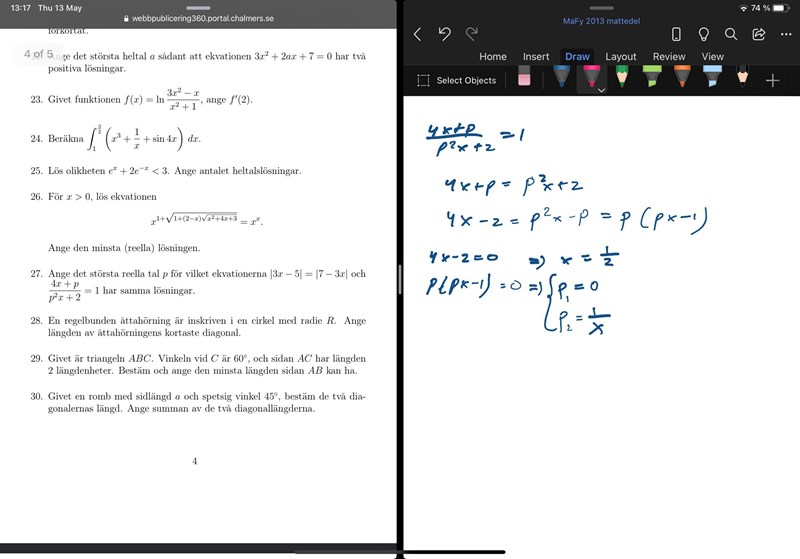 13:17 Thu 13 May
webbpublicering360.portal.chalmers.se
74 %
förkortat.
4 of 5
nge det största heltal a sådant att ekvationen 3x² + 2ax + 7 = 0 har två
positiva lösningar.
23. Givet funktionen f(x) = ln (3x² − x)/(x² + 1), ange f′(2).
24. Beräkna ∫₁^(3/2) (x³ + 1/x + sin 4x) dx.
25. Lös olikheten eˣ + 2e⁻ˣ < 3. Ange antalet heltalslösningar.
26. För x > 0, lös ekvationen
x^(1+√(1+(2−x)√(x²+4x+3))) = xˣ.
Ange den minsta (reella) lösningen.
27. Ange det största reella tal p för vilket ekvationerna |3x − 5| = |7 − 3x| och
(4x + p)/(p²x + 2) = 1 har samma lösningar.
28. En regelbunden åttahörning är inskriven i en cirkel med radie R. Ange
längden av åttahörningens kortaste diagonal.
29. Givet är triangeln ABC. Vinkeln vid C är 60°, och sidan AC har längden
2 längdenheter. Bestäm och ange den minsta längden sidan AB kan ha.
30. Givet en romb med sidlängd a och spetsig vinkel 45°, bestäm de två dia-
gonalernas längd. Ange summan av de två diagonallängderna.
4
MaFy 2013 mattedel
Home Insert Draw Layout Review View
Select Objects
(4x+p)/(p²x+2) = 1
4x+p = p²x+2
4x−2 = p²x−p = p(px−1)
4x−2=0 ⇒ x = 1/2
p(px−1)=0 ⇒ { p₁ = 0
p₂ = 1/x